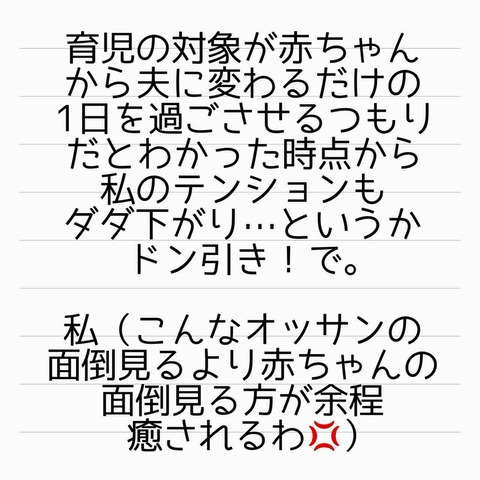 育児の対象が赤ちゃん
から夫に変わるだけの
1日を過ごさせるつもり
だとわかった時点から
私のテンションも
ダダ下がり…というか
ドン引き！で。
私（こんなオッサンの
面倒見るより赤ちゃんの
面倒見る方が余程
癒されるわ💢）